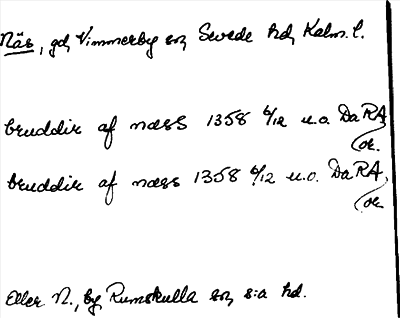 Näs, gd, Vimmerby sn, Sevede hd, Kalm. l.
bruddir af næss 1358 6/12 u.o. DaRA,
or.
bruddir af næss 1358 6/12 u.o. DaRA,
or.
Eller N., by, Rumskulla sn, s:a hd.